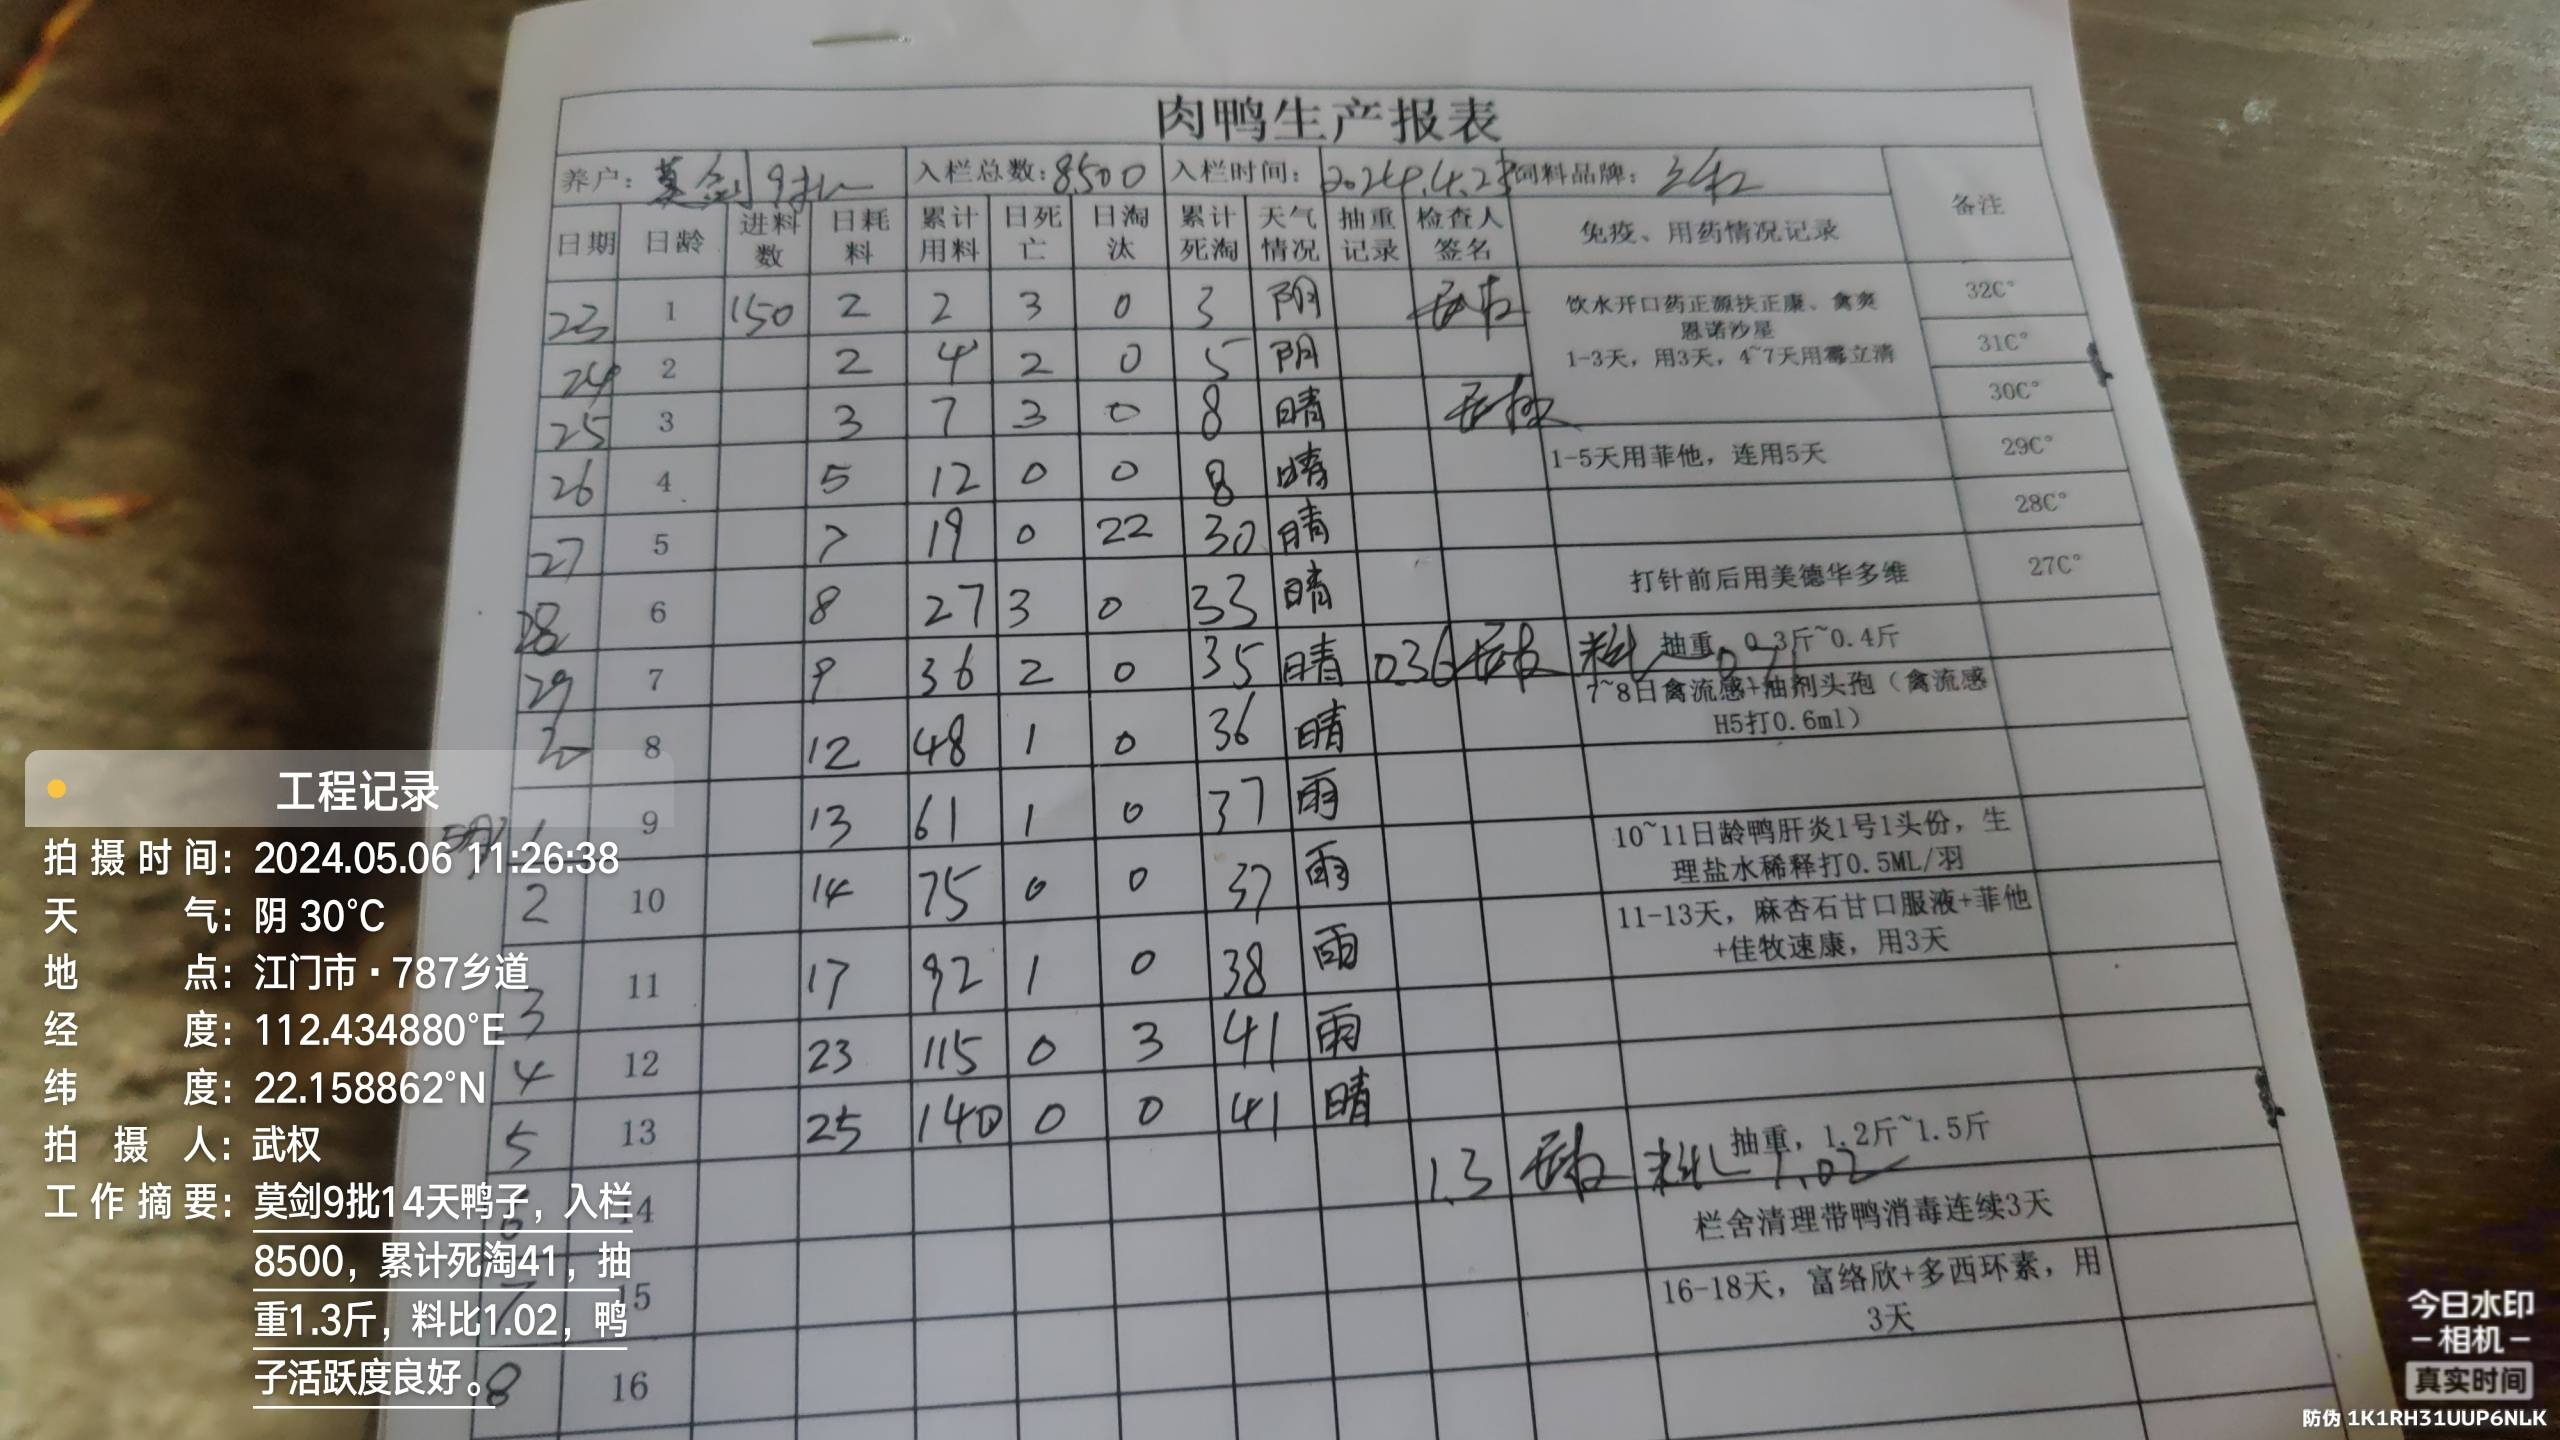 肉鸭生产报表
养户：莫剑9批 入栏总数:8500 入栏时间：2024.4.23 饲料品牌：
日期 日龄 进料数 日耗料 累计用料 日死亡 日淘汰 累计死淘 天气情况 抽重记录 检查人签名 免疫、用药情况记录 备注
23 1 150 2 2 3 0 3 阴 武权 32C°
饮水开口药正源扶正康、禽爽
恩诺沙星
1-3天，用3天，4~7天用霉立清
24 2 2 4 2 0 5 阴 31C°
25 3 3 7 3 0 8 晴 武权 30C°
26 4 5 12 0 0 8 晴 1-5天用菲他，连用5天 29C°
27 5 7 19 0 22 30 晴 28C°
28 6 8 27 3 0 33 晴 打针前后用美德华多维 27C°
29 7 9 36 2 0 35 晴 0.36 武权 料比 抽重，0.3斤~0.4斤
30 8 12 48 1 0 36 晴 7~8日禽流感+油剂头孢（禽流感
H5打0.6ml）
5月1 9 13 61 1 0 37 雨
2 10 14 75 0 0 37 雨 10~11日龄鸭肝炎1号1头份，生
理盐水稀释打0.5ML/羽
3 11 17 92 1 0 38 雨 11-13天，麻杏石甘口服液+菲他
+佳牧速康，用3天
4 12 23 115 0 3 41 雨
5 13 25 140 0 0 41 晴
6 14 1.3 武权 料比 1.02 抽重，1.2斤~1.5斤
栏舍清理带鸭消毒连续3天
7 15 16-18天，富络欣+多西环素，用
3天
8 16
工程记录
拍摄时间：2024.05.06 11:26:38
天气：阴 30°C
地点：江门市·787乡道
经度：112.434880°E
纬度：22.158862°N
拍摄人：武权
工作摘要：莫剑9批14天鸭子，入栏
8500，累计死淘41，抽
重1.3斤，料比1.02，鸭
子活跃度良好。
今日水印
-相机-
真实时间
防伪 1K1RH31UUP6NLK